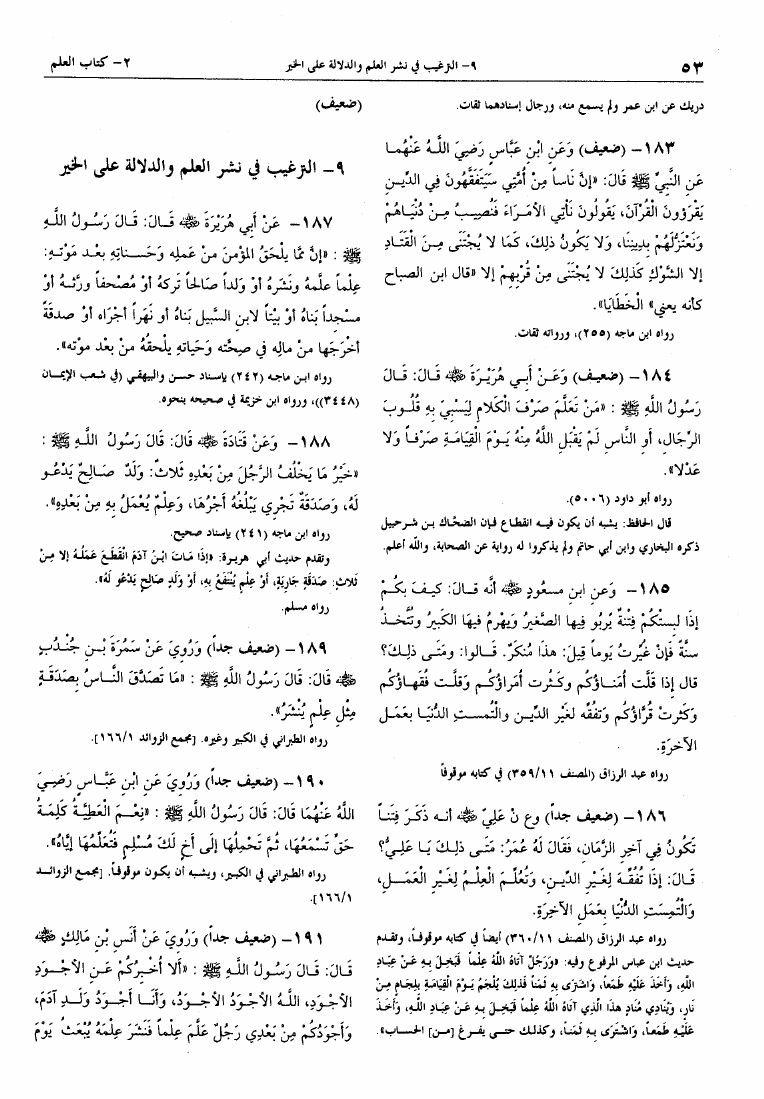 ٥٣
٩- الترغيب في نشر العلم والدلالة على الخير
٢- كتاب العلم
دريك عن ابن عمر ولم يسمع منه، ورجال إسنادهما ثقات.
١٨٣- (ضعيف) وَعَنِ ابْنِ عَبَّاسٍ رَضِيَ اللَّهُ عَنْهُمَا
عَنِ النَّبِيِّ ﷺ قَالَ: «إِنَّ نَاساً مِنْ أُمَّتِي سَيَتَفَقَّهُونَ فِي الدِّينِ
يَقْرَؤونَ الْقُرْآنَ، يَقُولُونَ نَأْتِي الأُمَرَاءَ فَنُصِيبُ مِنْ دُنْيَاهُمْ
وَنَعْتَزِلُهُمْ بِدِينِنَا، وَلا يَكُونُ ذلِكَ، كَمَا لا يُجْتَنَى مِنَ الْقَتَادِ
إلا الشَّوْكَ كَذلِكَ لا يُجْتَنَى مِنْ قُرْبِهِمْ إلا «قال ابن الصباح
كأنه يعني» الْخَطَايَا».
رواه ابن ماجه (٢٥٥)، ورواته ثقات.
١٨٤- (ضعيف) وَعَنْ أَبِي هُرَيْرَةَ ﷺ قَالَ: قَالَ
رَسُولُ اللَّهِ ﷺ: «مَنْ تَعَلَّمَ صَرْفَ الْكَلامِ لِيَسْبِيَ بِهِ قُلُوبَ
الرِّجَالِ، أَوِ النَّاسِ لَمْ يَقْبَلِ اللَّهُ مِنْهُ يَوْمَ الْقِيَامَةِ صَرْفاً وَلا
عَدْلا».
رواه أبو داود (٥٠٠٦).
قال الحافظ: يشبه أن يكون فيه انقطاع فإن الضحّاك بن شرحبيل
ذكره البخاري وابن أبي حاتم ولم يذكروا له رواية عن الصحابة، والله أعلم.
١٨٥- وَعن ابن مسعودٍ ﷺ أنَّه قال: كيفَ بكُمْ
إذَا لبِسَتْكُمْ فِتنةٌ يَربُو فيها الصَّغيرُ ويَهرُمُ فيها الكبيرُ وتُتَّخذُ
سنَّةً فَإِنْ غُيِّرتْ يَوماً قِيلَ: هذَا مُنكَرٌ. قَالوا: ومَتَى ذلِكَ؟
قال إذَا قلَّت أُمَناؤُكم وكثُرت أُمَراؤُكم وقلَّت فُقَهاؤُكم
وَكثرتْ قُرَّاؤكُم وَتفقِّه لغَير الدِّين والْتُمستِ الدُّنيَا بعَمَلِ
الآخرَةِ.
رواه عبد الرزاق (المصنف ٣٥٩/١١) في كتابه موقوفاً
١٨٦- (ضعيف جداً) وع نْ عَلِيٍّ ﷺ أنه ذَكَرَ فِتَناً
تَكُونُ فِي آخِرِ الزَّمَانِ، فَقَالَ لَهُ عُمَرُ: مَتَى ذلِكَ يَا عَلِيُّ؟
قَالَ: إذَا تُفُقِّهَ لِغَيْرِ الدِّينِ، وَتُعُلِّمَ الْعِلْمُ لِغَيْرِ الْعَمَلِ،
وَالْتُمِسَتِ الدُّنْيَا بِعَمَلِ الآخِرَةِ.
رواه عبد الرزاق (المصنف ٣٦٠/١١) أيضاً في كتابه موقوفاً، وتقدم
حديث ابن عباس المرفوع وفيه: «وَرَجُلٌ آتَاهُ اللَّهُ عِلْماً فَبَخِلَ بِهِ عَنْ عِبَادِ
اللَّهِ، وَأَخَذَ عَلَيْهِ طَمَعاً، وَاشْتَرَى بِهِ ثَمَناً فَذلِكَ يُلْجَمُ يَوْمَ الْقِيَامَةِ بِلِجَامٍ مِنْ
نَارٍ، وَيُنَادِي مُنَادٍ هذَا الَّذِي آتَاهُ اللَّهُ عِلْماً فَبَخِلَ بِهِ عَنْ عِبَادِ اللَّهِ، وَأَخَذَ
عَلَيْهِ طَمَعاً، وَاشْتَرَى بِهِ ثَمَناً، وكذلك حتى يفرغ [من] الحساب».
(ضعيف)
٩- الترغيب في نشر العلم والدلالة على الخير
١٨٧- عَنْ أَبِي هُرَيْرَةَ ﷺ قَالَ: قَالَ رَسُولُ اللَّهِ
ﷺ: «إنَّ مِمَّا يلْحَقُ المؤمنَ منْ عَملِهِ وَحَسنَاتِهِ بعْد مَوْتِهِ:
عِلْماً علَّمهُ ونَشَرهُ أوْ وَلداً صَالحاً تَركهُ أوْ مُصْحفاً ورَّثهُ أوْ
مسْجداً بَناهُ أوْ بيْتاً لابنِ السَّبيلِ بَناهُ أو نَهْراً أجْرَاه أوْ صدقَةً
أخْرَجَها منْ مالِهِ في صحَّتهِ وَحَياتِهِ يلْحقُهُ منْ بعْد موْته».
رواه ابن ماجه (٢٤٢) بإسناد حسن والبيهقي (في شعب الإيمان
(٣٤٤٨))، ورواه ابن خزيمة في صحيحه بنحوه.
١٨٨- وَعَنْ قَتَادَةَ ﷺ قَالَ: قَالَ رَسُولُ اللَّهِ ﷺ:
«خَيْرُ مَا يَخْلُفُ الرَّجُلَ مِنْ بَعْدِهِ ثَلاثٌ: وَلَدٌ صَالِحٌ يَدْعُو
لَهُ، وَصَدَقَةٌ تَجْرِي يَبْلُغُهُ أَجْرُهَا، وَعِلْمٌ يُعْمَلُ بِهِ مِنْ بَعْدِهِ».
رواه ابن ماجه (٢٤١) بإسناد صحيح.
وتقدم حديث أبي هريرة: «إِذَا مَاتَ ابْنُ آدَمَ انْقَطَعَ عَمَلُهُ إلا مِنْ
ثَلاثٍ: صَدَقَةٍ جَارِيَةٍ، أَوْ عِلْمٍ يُنْتَفَعُ بِهِ، أَوْ وَلَدٍ صَالِحٍ يَدْعُو لَهُ».
رواه مسلم.
١٨٩- (ضعيف جداً) وَرُوِيَ عَنْ سَمُرَةَ بْنِ جُنْدُبٍ
ﷺ قَالَ: قَالَ رَسُولُ اللَّهِ ﷺ: «مَا تَصَدَّقَ النَّاسُ بِصَدَقَةٍ
مِثْلَ عِلْمٍ يُنْشَرُ».
رواه الطبراني في الكبير وغيره. [مجمع الزوائد ١٦٦/١].
١٩٠- (ضعيف جداً) وَرُوِيَ عَنِ ابْنِ عَبَّاسٍ رَضِيَ
اللَّهُ عَنْهُمَا قَالَ: قَالَ رَسُولُ اللَّهِ ﷺ: «نِعْمَ الْعَطِيَّةُ كَلِمَةُ
حَقٍّ تَسْمَعُهَا، ثُمَّ تَحْمِلُهَا إِلَى أَخٍ لَكَ مُسْلِمٍ فَتُعَلِّمُهَا إِيَّاهُ».
رواه الطبراني في الكبير، ويشبه أن يكون موقوفاً. [مجمع الزوائد
١٦٦/١].
١٩١- (ضعيف جداً) وَرُوِيَ عَنْ أَنَسِ بْنِ مَالِكٍ ﷺ
قَالَ: قَالَ رَسُولُ اللَّهِ ﷺ: «أَلا أُخْبِرُكُمْ عَنِ الأَجْوَدِ
الأَجْوَدِ، اللَّهُ الأَجْوَدُ الأَجْوَدُ، وَأَنَا أَجْوَدُ وَلَدِ آدَمَ،
وَأَجْوَدُكُمْ مِنْ بَعْدِي رَجُلٌ عَلَّمَ عِلْماً فَنَشَرَ عِلْمَهُ يُبْعَثُ يَوْمَ